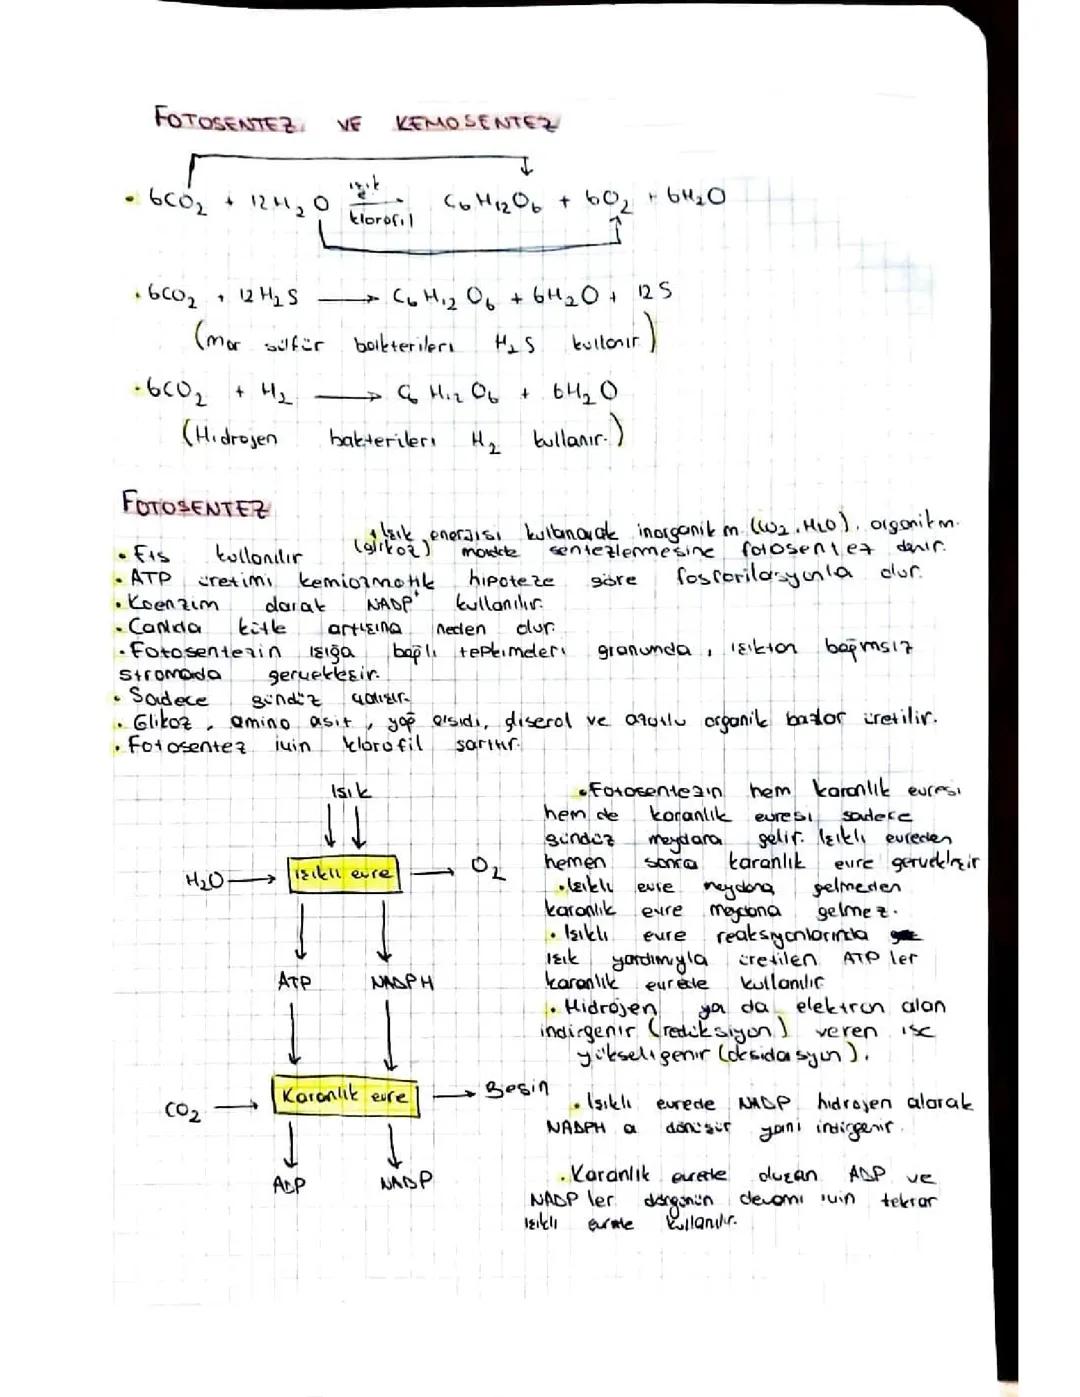 FOTOSENTEZ VE KEMOSENTEZ
• 6CO₂ + 12H₂O ışık klorofil C₆H₁₂O₆ + 6O₂ + 6H₂O
• 6CO₂ + 12H₂S → C₆H₁₂O₆ + 6H₂O + 12S
(mor sülfür bakterileri H₂S kullanır)
• 6CO₂ + H₂ → C₆H₁₂O₆ + 6H₂O
(Hidrojen bakterileri H₂ kullanır.)
FOTOSENTEZ
Işık enerjisi kullanarak inorganik m. (CO₂, H₂O), organik m.
(glikoz) madde sentezlenmesine fotosentez denir.
• Ets kullanılır
• ATP üretimi kemiozmotik hipoteze göre fosforilasyonla olur.
• Koenzim olarak NADP⁺ kullanılır.
• Canlıda kütle artışına neden olur.
• Fotosentezin ışığa bağlı tepkimeleri granumda, ışıktan bağımsız
stromada gerçekleşir.
• Sadece gündüz çalışır.
• Glikoz, amino asit, yağ asidi, gliserol ve azotlu organik bazlar üretilir.
• Fotosentez için klorofil şarttır.
Işık
H₂O → Işıklı evre → O₂
ATP NADPH
CO₂ → Karanlık evre → Besin
ADP NADP
• Fotosentezin hem karanlık evresi
hem de karanlık evresi sadece
gündüz meydana gelir. Işıklı evreden
hemen sonra karanlık evre gerçekleşir
• Işıklı evre meydana gelmeden
karanlık evre meydana gelmez.
• Işıklı evre reaksiyonlarında
ışık yardımıyla üretilen ATP ler
karanlık evrede kullanılır
• Hidrojen ya da elektron alan
indirgenir (redüksiyon) veren ise
yükseltgenir (oksidasyon).
• Işıklı evrede NADP hidrojen alarak
NADPH a dönüşür yani indirgenir.
• Karanlık evrede oluşan ADP ve
NADP ler döngünün devamı için tekrar
ışıklı evrede kullanılır.